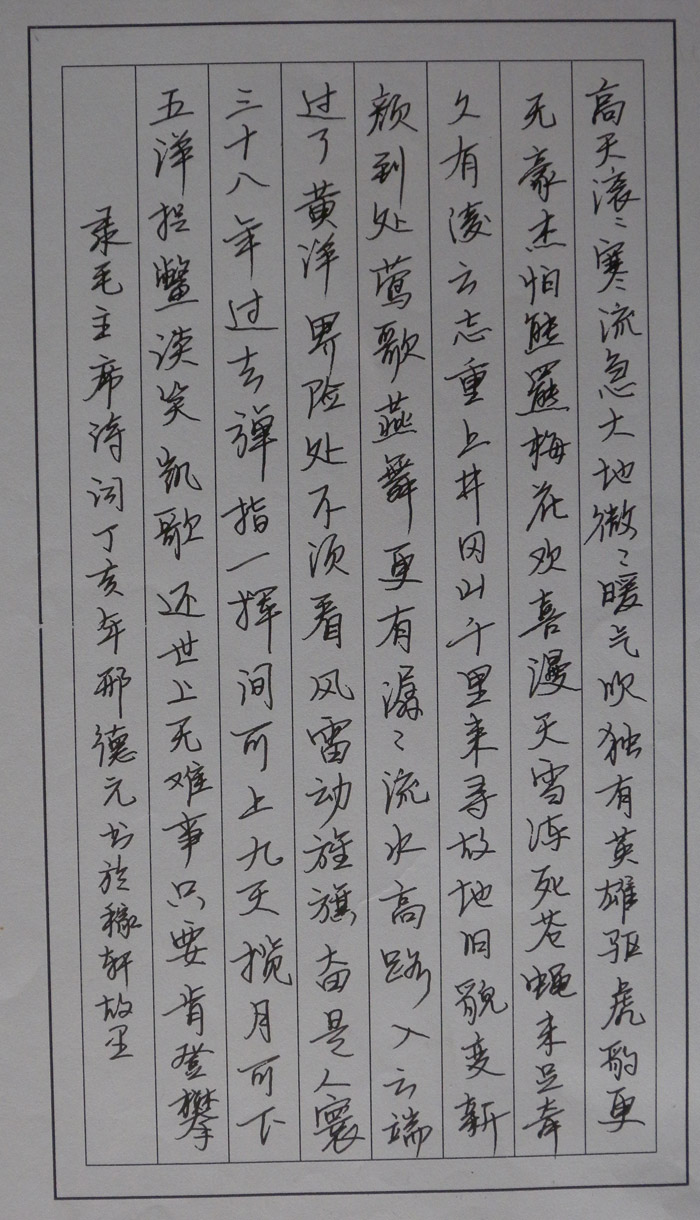 高天滚〻寒流急大地微〻暖气吹独有英雄驱虎豹更
无豪杰怕熊罴梅花欢喜漫天雪冻死苍蝇未足奇
久有凌云志重上井冈山千里来寻故地旧貌变新
颜到处莺歌燕舞更有潺〻流水高路入云端
过了黄洋界险处不须看风雷动旌旗奋是人寰
三十八年过去弹指一挥间可上九天揽月可下
五洋捉鳖谈笑凯歌还世上无难事只要肯登攀
录毛主席诗词丁亥年邢德元书於稼轩故里